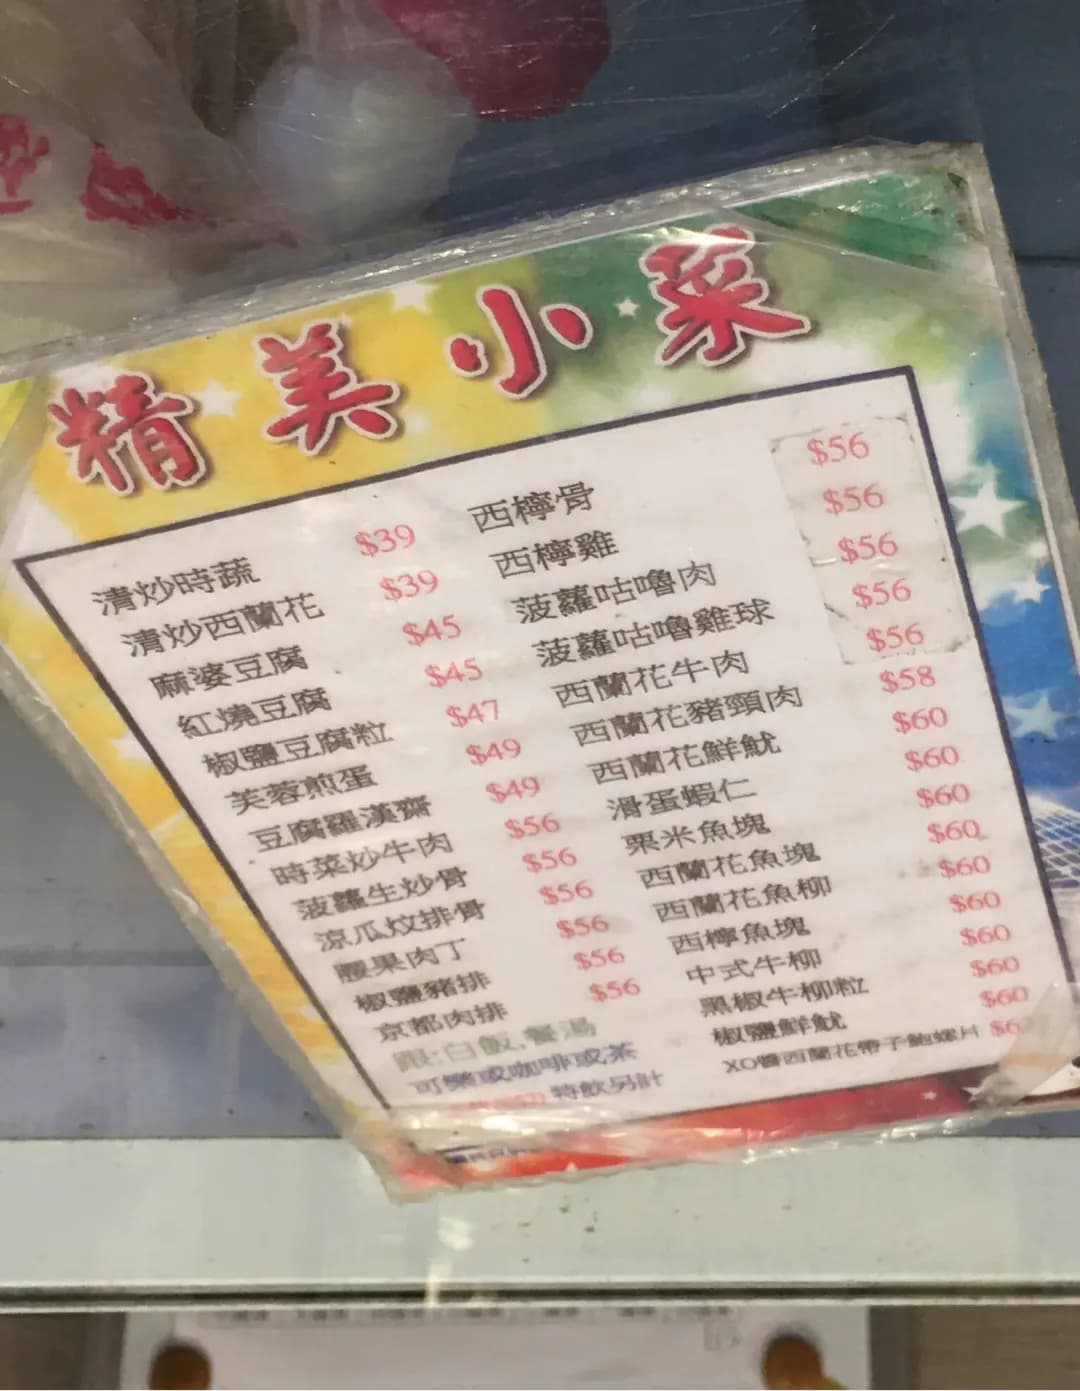 精美小菜
清炒時蔬 $39
清炒西蘭花 $39
麻婆豆腐 $45
紅燒豆腐 $45
椒鹽豆腐粒 $47
芙蓉煎蛋 $49
豆腐羅漢齋 $49
時菜炒牛肉 $56
菠蘿生炒骨 $56
涼瓜炆排骨 $56
腰果肉丁 $56
椒鹽豬排 $56
京都肉排 $56
跟:白飯,餐湯
可樂或咖啡或茶
特飲另計
西檸骨 $56
西檸雞 $56
菠蘿咕嚕肉 $56
菠蘿咕嚕雞球 $56
西蘭花牛肉 $56
西蘭花豬頸肉 $58
西蘭花鮮魷 $60
滑蛋蝦仁 $60
栗米魚塊 $60
西蘭花魚塊 $60
西蘭花魚柳 $60
西檸魚塊 $60
中式牛柳 $60
黑椒牛柳粒 $60
椒鹽鮮魷 $60
XO醬西蘭花帶子鮑螺片